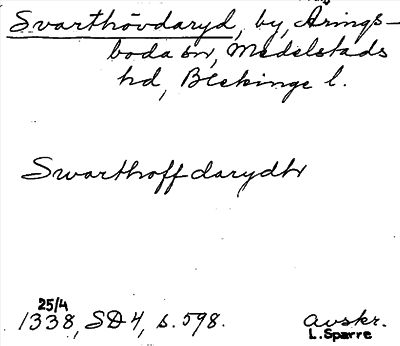 Svarthövdaryd, by, Arings-
boda sn, Medelstads
hd, Blekinge l.
Swarthoffdarydhr
25/4
1338, SD 4, s. 598.
avskr.
L. Sparre